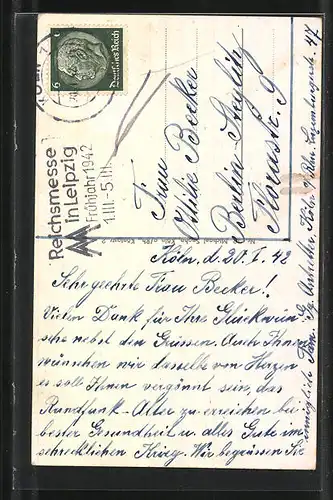 6
Deutsches Reich
6
KÖLN
Reichsmesse
in Leipzig
Frühjahr 1942
1.III.-5.III.
Frau
Otilie Becker
Berlin-Steglitz
Florastr. 9
Köln, d. 20.1.42
Sehr geehrte Frau Becker!
Vielen Dank für Ihre Glückwün-
sche nebst den Grüssen. Auch Ihnen
wünschen wir dasselbe von Herzen
es soll Ihnen vergönnt sein, das
Rundfunk-Alter zu erreichen bei
bester Gesundheit u. alles Gute im
schrecklichen Krieg. Wir begrüssen Sie
Fam. Köln Luxemburgerstr. 47